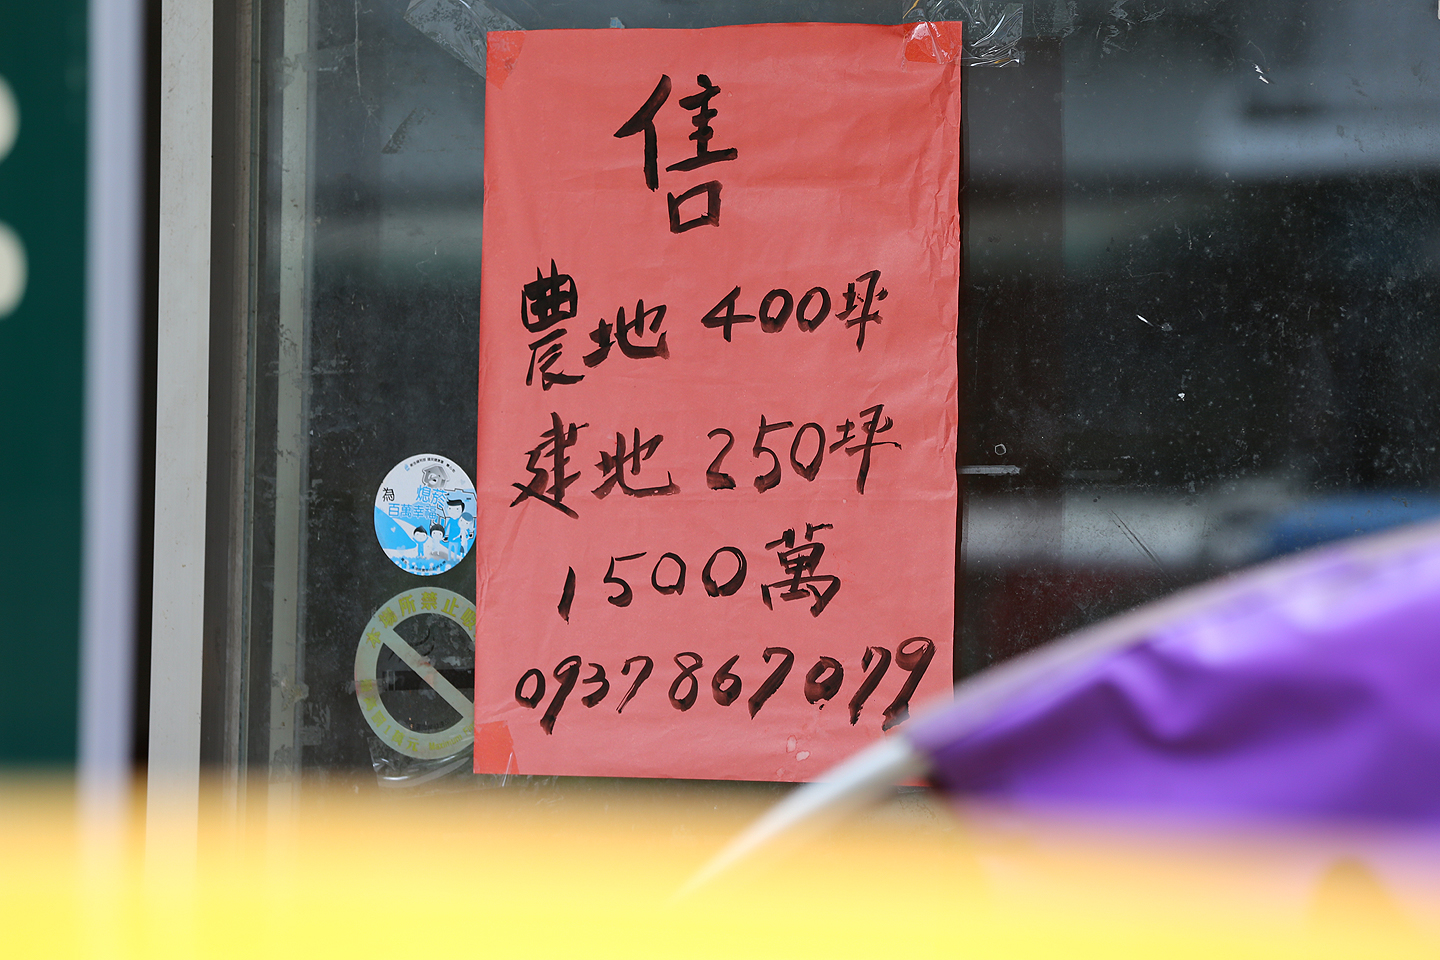 售
農地 400坪
建地 250坪
1500萬
0937867079
為 熄菸
百萬幸福
所禁止